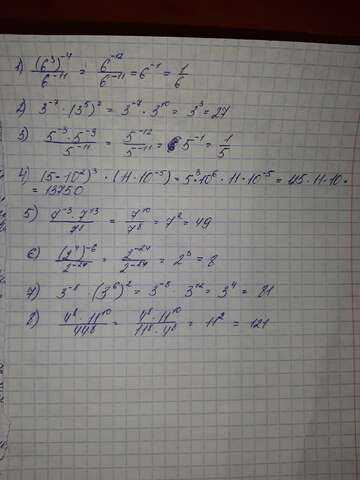 1) (6³)⁻⁴ / 6⁻¹¹ = 6⁻¹² / 6⁻¹¹ = 6⁻¹ = 1/6
2) 3⁻⁷ · (3⁵)² = 3⁻⁷ · 3¹⁰ = 3³ = 27
3) 5⁻³ · 5⁻³ / 5⁻¹¹ = 5⁻¹² / 5⁻¹¹ = 5⁻¹ = 1/5
4) (5 · 10²)³ · (11 · 10⁻⁵) = 5³ · 10⁶ · 11 · 10⁻⁵ =
= 13750
5) 7⁻³ · 7¹³ / 7⁸ = 7¹⁰ / 7⁸ = 7² = 49
6) (2⁴)⁻⁶ / 2⁻²⁷ = 2⁻²⁴ / 2⁻²⁷ = 2³ = 8
7) 3⁻⁸ (3⁶)² = 3⁻⁸ 3¹² = 3⁴ = 81
8) 4⁸ · 11¹⁰ / 44⁸ = 4⁸ · 11¹⁰ / 11⁸ · 4⁸ = 11² = 121